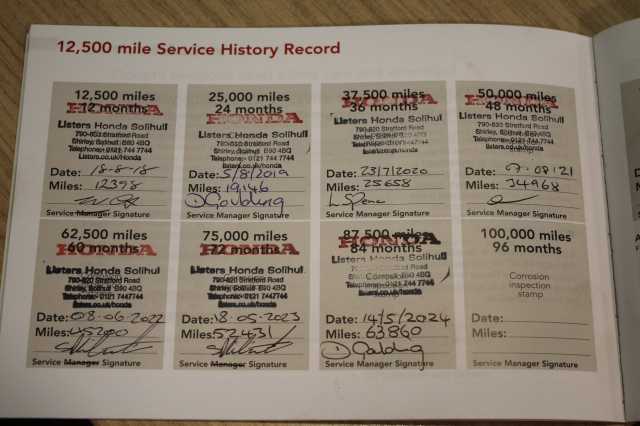 12,500 mile Service History Record
12,500 miles
12 months
HONDA
Listers Honda Solihull
790-820 Stratford Road
Shirley, Solihull B90 4BQ
Telephone: 0121 744 7744
Listers.co.uk/honda
Date: 18-8-18
Miles: 12398
Service Manager Signature
25,000 miles
24 months
HONDA
Listers Honda Solihull
790-820 Stratford Road
Shirley, Solihull B90 4BQ
Telephone: 0121 744 7744
Listers.co.uk/honda
Date: 5/8/2019
Miles: 19,146
D Goulding
Service Manager Signature
37,500 miles
36 months
HONDA
Listers Honda Solihull
790-820 Stratford Road
Shirley, Solihull B90 4BQ
Telephone: 0121 744 7744
Listers.co.uk/honda
Date: 23/7/2020
Miles: 25658
Service Manager Signature
50,000 miles
48 months
HONDA
Listers Honda Solihull
790-820 Stratford Road
Shirley, Solihull B90 4BQ
Telephone: 0121 744 7744
Listers.co.uk/honda
Date: 07.08.21
Miles: 34968
Service Manager Signature
62,500 miles
60 months
HONDA
Listers Honda Solihull
790-820 Stratford Road
Shirley, Solihull B90 4BQ
Telephone: 0121 7447744
listers.co.uk/honda
Date: 08-06-2022
Miles: 45200
Service Manager Signature
75,000 miles
72 months
HONDA
Listers Honda Solihull
790-820 Stratford Road
Shirley, Solihull B90 4BQ
Telephone: 0121 7447744
listers.co.uk/honda
Date: 18-05-2023
Miles: 52431
Service Manager Signature
87,500 miles
84 months
HONDA
Listers Honda Solihull
790-820 Stratford Road
Corrosion
Telephone: 0121 744 7744
Listers.co.uk/honda
Date: 14/5/2024
Miles: 63860
D Goulding
Service Manager Signature
100,000 miles
96 months
Corrosion
inspection
stamp
Date:
Miles:
Service Manager Signature